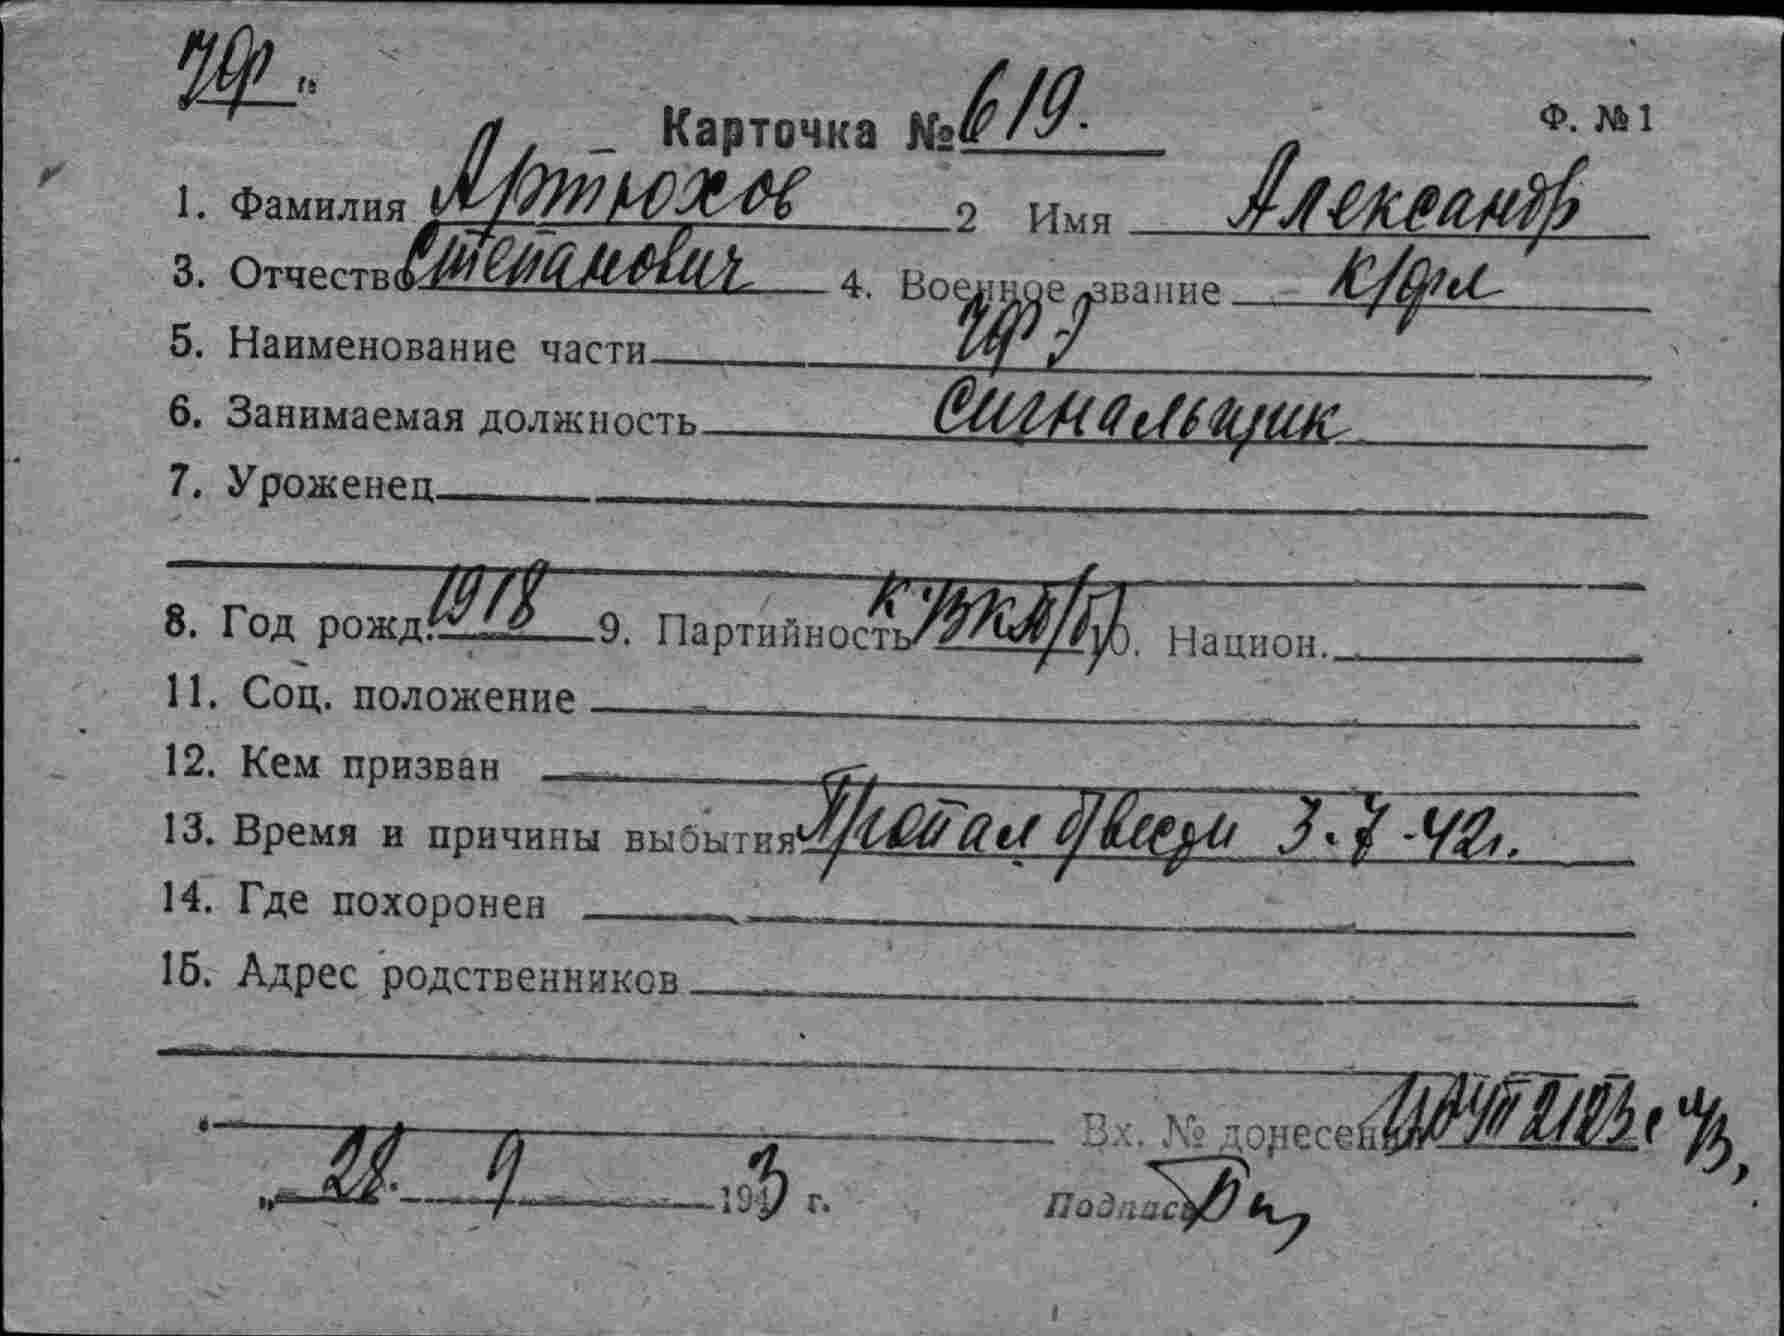 ЧФ
Карточка № 619. Ф. № 1
1. Фамилия Артюхов 2 Имя Александр
3. Отчество Степанович 4. Военное звание к/фл
5. Наименование части ЧФ
6. Занимаемая должность сигнальщик
7. Уроженец
8. Год рожд. 1918 9. Партийность к. ВКП/б/ 10. Национ.
11. Соц. положение
12. Кем призван
13. Время и причины выбытия Пропал 3.7-42г.
14. Где похоронен
15. Адрес родственников
Вх. № донесения
„ 28. 9 1943 г. Подпись